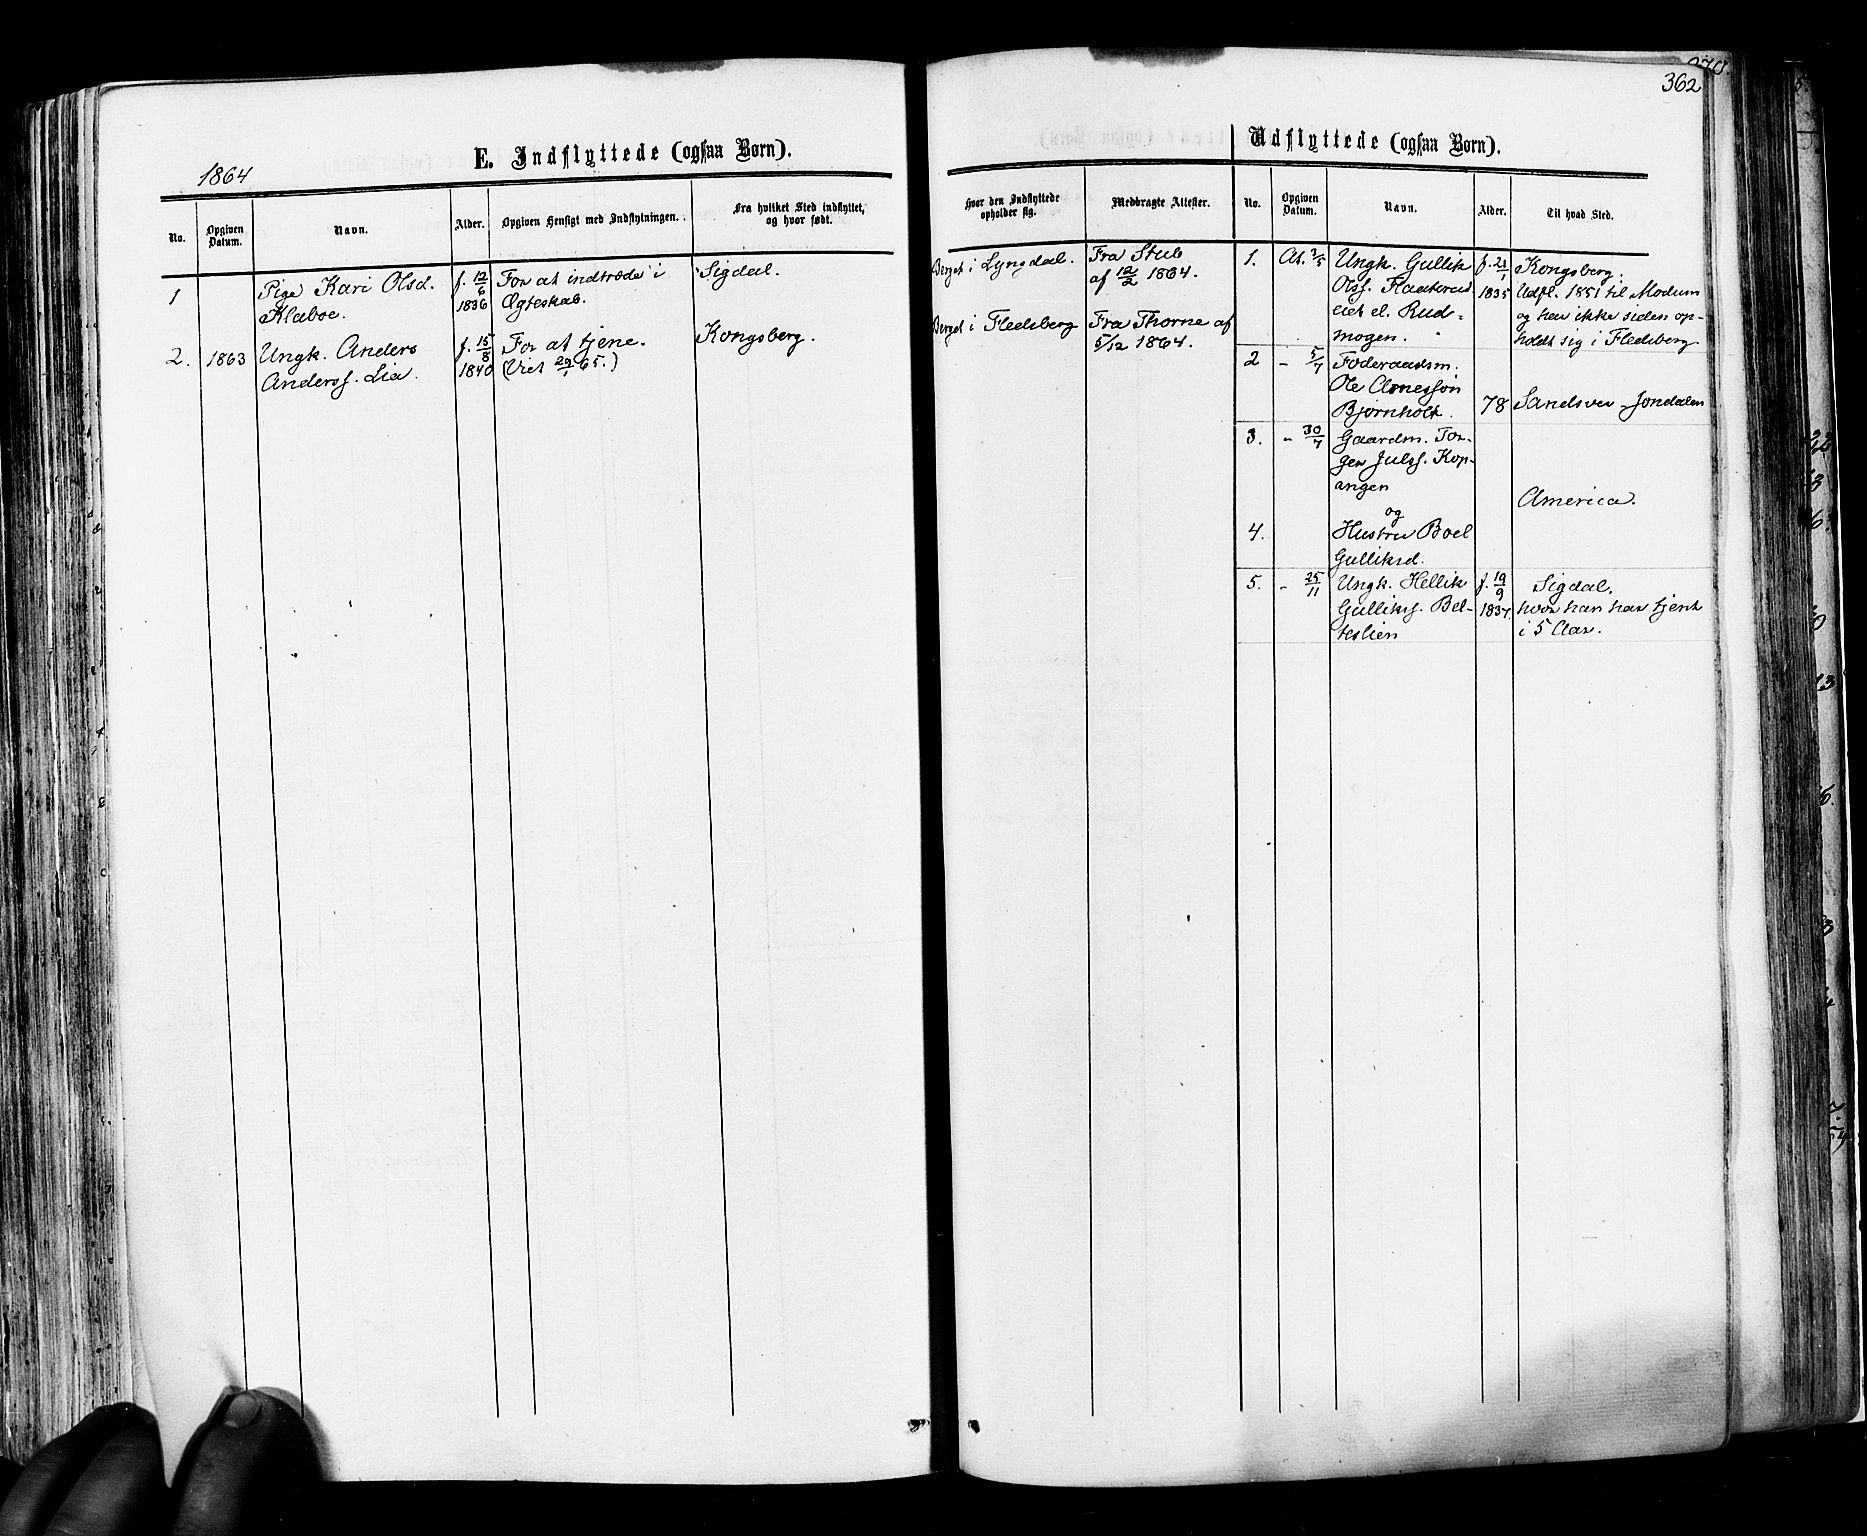 362
1864
E. Indflyttede (ogsaa Børn).
No.
Opgiven Datum.
Navn.
Alder.
Opgiven Hensigt med Indflytningen.
Fra hvilket Sted indflyttet,
og hvor født.
1
Pige Kari Olsd.
Klaboe.
f. 12/6
1836
For at indtræde i
Ægteskab.
Sigdal.
2. 1863
Ungk. Anders
Anderss. Lia.
f. 15/8
1840
For at tjene.
(Viet 29/1 65.)
Kongsberg.
Udflyttede (ogsaa Børn).
Hvor den Indflyttede
opholder sig.
Medbragte Attester.
No.
Opgiven
Datum.
Navn.
Alder.
Til hvad Sted.
Berget i Lyngdal.
Fra Stub
af 12/2 1864.
Berget i Flesberg
Fra Thorne af
5/12 1864.
1. At. 2/5
Ungk. Gullik
Olss. Flaaterud
eiet el. Rud-
mogen.
f. 21/1
1835
Kongsberg.
Udfl. 1851 til Modum
og har ikke siden op-
holdt sig i Flesberg
2 - 5/7
Foderaadsm.
Ole Arnesson
Bjørnholt.
78
Sandsver - Jondalen
3. - 30/7
Gaardm. Tor-
ger Julss. Kop-
angen
og
America.
4.
Hustru Boel
Gulliksd.
5. - 25/11
Ungk. Hellik
Gulliks. Bel-
teslien
f. 19/9
1837.
Sigdal,
hvor han har tjent
i 5 Aar.